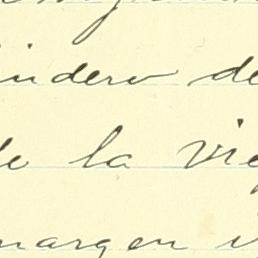 indero de
de la vie
margen i